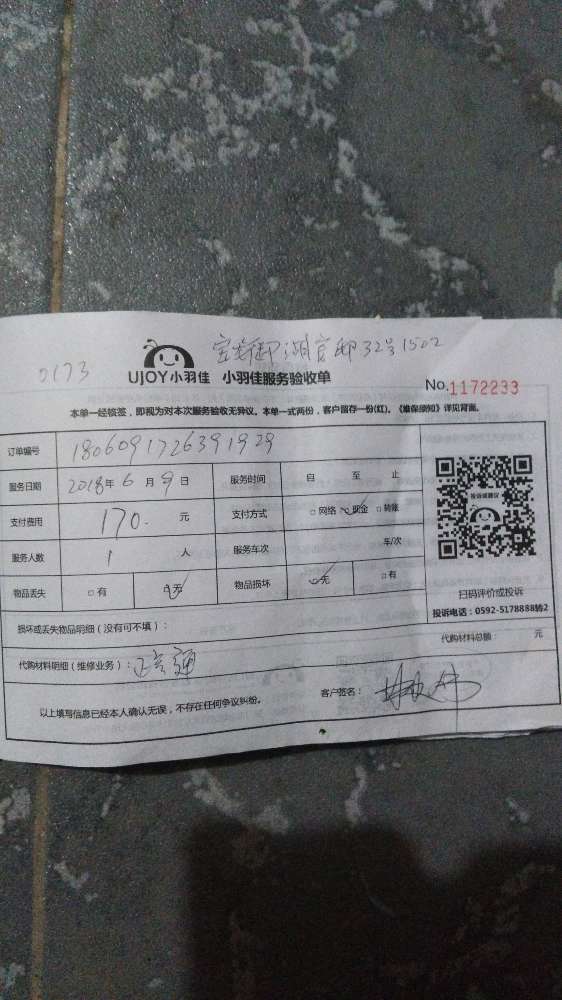 0173 宝龙御湖官邸32号1502
UJOY小羽佳 小羽佳服务验收单
No.1172233
本单一经核签，即视为对本次服务验收无异议。本单一式两份，客户留存一份(红)。《维保须知》详见背面。
订单编号 1806091726391929
服务日期 2018年6月9日 服务时间 自 至 止
支付费用 170. 元 支付方式 □网络 ☑现金 □转账
服务人数 1 人 服务车次 车/次
物品丢失 □有 ☑无 物品损坏 ☑无 □有
投诉或建议
扫码评价或投诉
投诉电话：0592-5178888转2
损坏或丢失物品明细（没有可不填）：
代购材料总额： 元
代购材料明细（维修业务）：
以上填写信息已经本人确认无误，不存在任何争议纠纷。 客户签名：